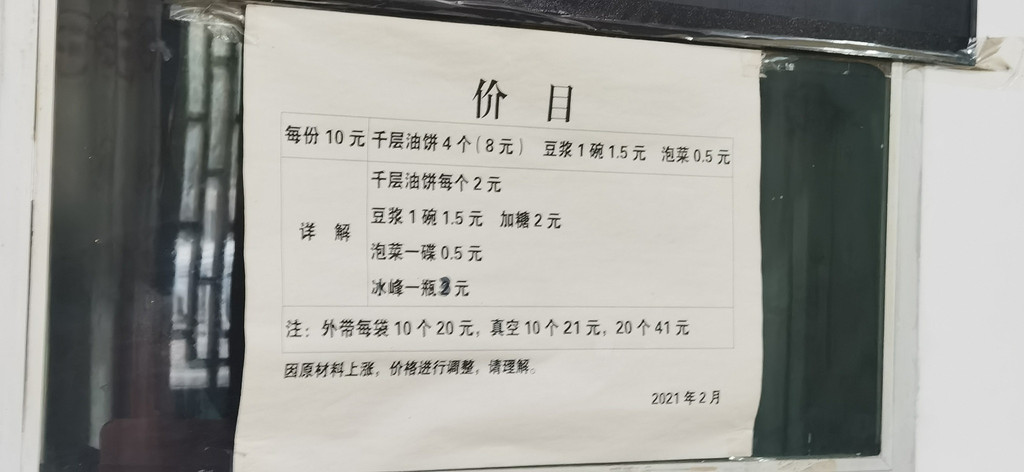 价 目
每份 10 元 千层油饼 4 个(8 元) 豆浆 1 碗 1.5 元 泡菜 0.5 元
千层油饼每个 2 元
豆浆 1 碗 1.5 元 加糖 2 元
详 解
泡菜一碟 0.5 元
冰峰一瓶 元
注：外带每袋 10 个 20 元，真空 10 个 21 元，20 个 41 元
因原材料上涨，价格进行调整，请理解。
2021 年 2 月